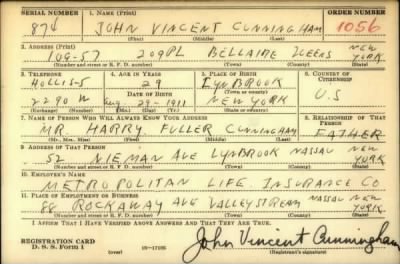 SERIAL NUMBER 1. NAME (Print) ORDER NUMBER
874 JOHN VINCENT CUNNINGHAM 1056
(First) (Middle) (Last)
2. ADDRESS (Print)
109-57 209 PL BELLAIRE QUEENS NEW YORK
(Number and street or R. F. D. number) (Town) (County) (State)
3. TELEPHONE 4. AGE IN YEARS 5. PLACE OF BIRTH 6. COUNTRY OF CITIZENSHIP
HOLLIS-5 29 LYNBROOK
DATE OF BIRTH (Town or county)
2290 W Aug. 29-1911 NEW YORK U.S
(Exchange) (Number) (Mo.) (Day) (Yr.) (State or country)
7. NAME OF PERSON WHO WILL ALWAYS KNOW YOUR ADDRESS 8. RELATIONSHIP OF THAT PERSON
MR. HARRY FULLER CUNNINGHAM FATHER
(Mr., Mrs., Miss) (First) (Middle) (Last)
9. ADDRESS OF THAT PERSON
52 NIEMAN AVE LYNBROOK NASSAU NEW YORK
(Number and street or R. F. D. number) (Town) (County) (State)
10. EMPLOYER'S NAME
METROPOLITAN LIFE INSURANCE CO
11. PLACE OF EMPLOYMENT OR BUSINESS
88 ROCKAWAY AVE VALLEY STREAM NASSAU NEW YORK
(Number and street or R. F. D. number) (Town) (County) (State)
I AFFIRM THAT I HAVE VERIFIED ABOVE ANSWERS AND THAT THEY ARE TRUE.
REGISTRATION CARD
D. S. S. Form 1 (over) 16-17105 John Vincent Cunningham
(Registrant's signature)